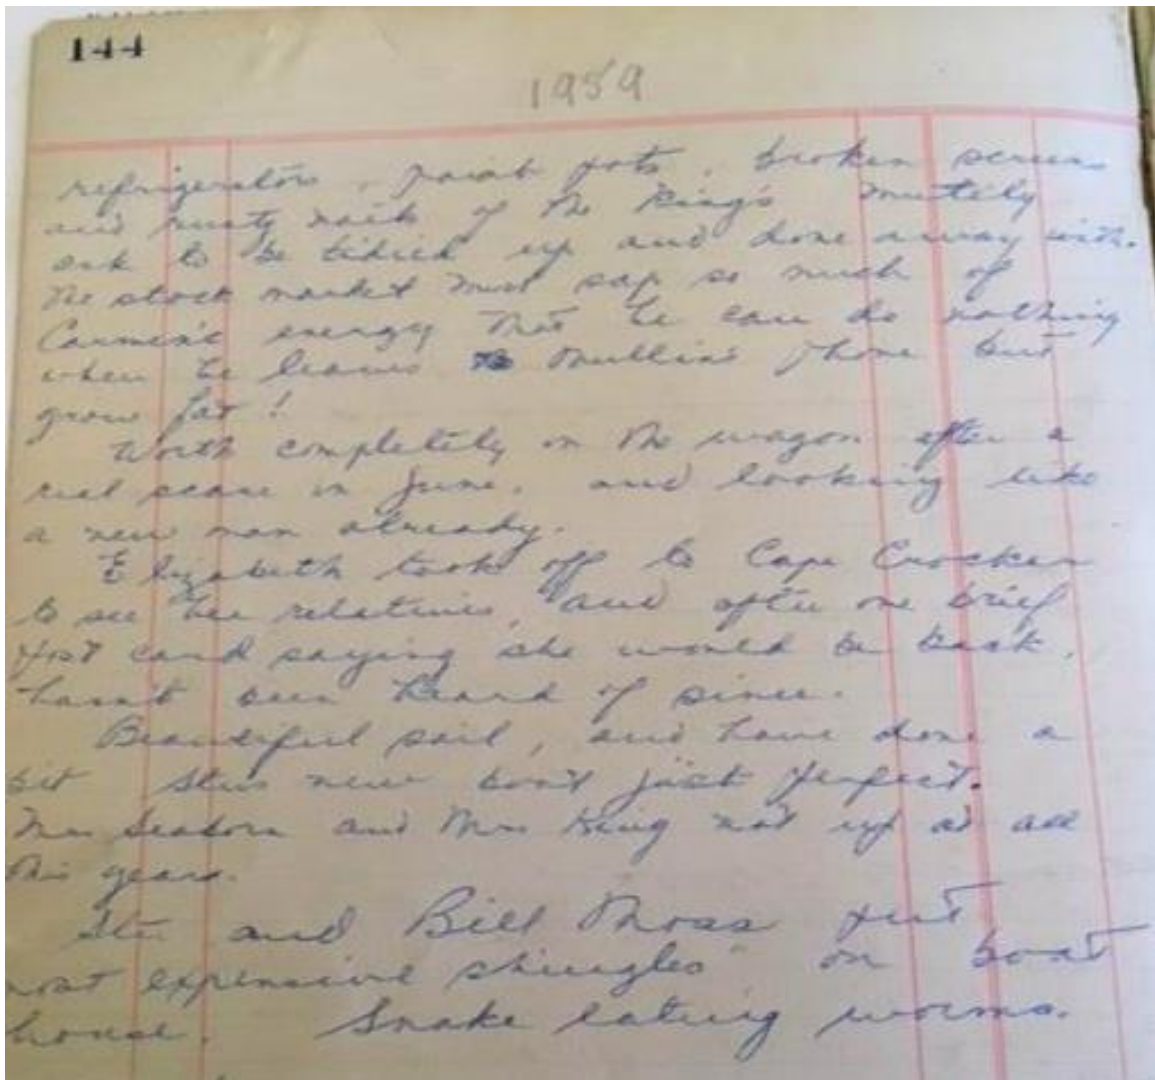 144
1959
refrigerators, paint pots, broken screens
and rusty nails of the King's mutely
ask to be tidied up and done away with.
The stock market must sap so much of
energy that he can do nothing
when he leaves phone but
grow fat!
Worth completely on the wagon after a
real scare in June. and looking like
a new man already.
Elizabeth took off to Cape Crocker
to see her relatives, and after one brief
post card saying she would be back,
hasn't been heard of since.
Beautiful sail, and have done a
bit Stu's new boat just perfect.
Mrs Seaborn and Mrs King not up at all
this year.
Stu and Bill Moss put
most expensive shingles on boat
house. Snake eating worms.